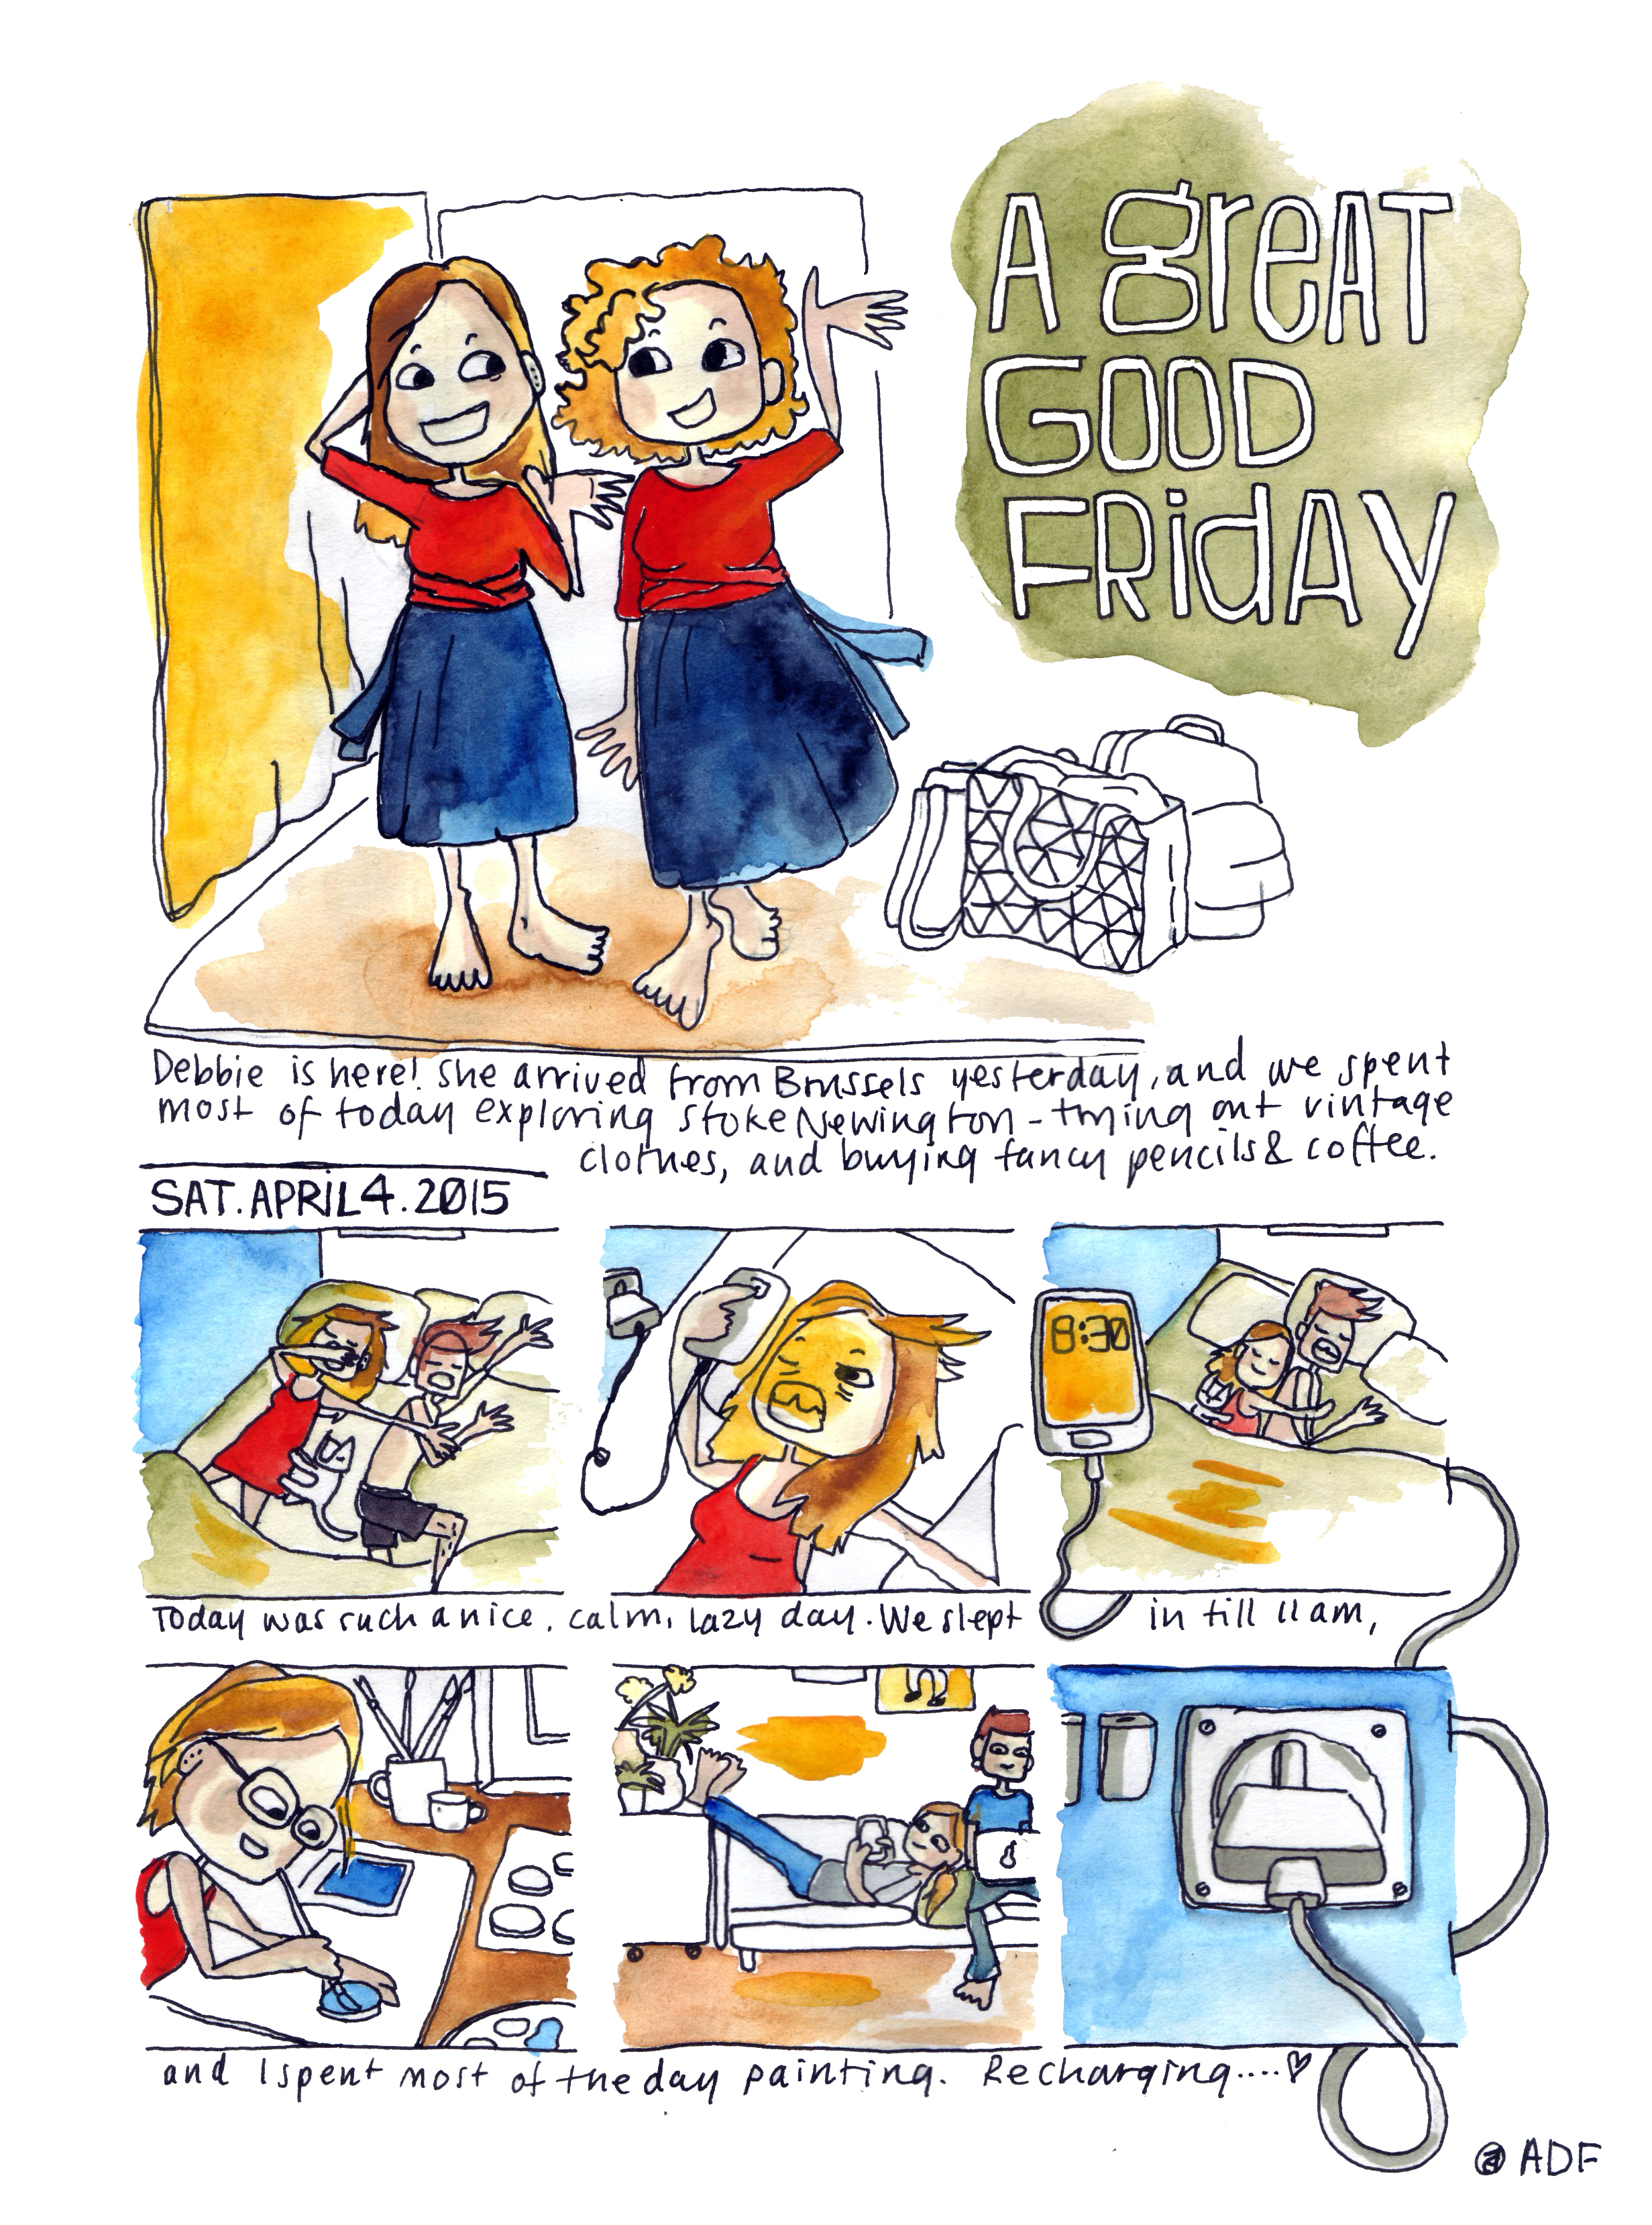 A greAT
GOOD
FRidAY
Debbie is here! She arrived from Brussels yesterday, and we spent
most of today exploring Stoke Newington - trying out vintage
clothes, and buying fancy pencils & coffee.
SAT. APRIL 4. 2015
8:30
Today was such a nice, calm, lazy day. We slept in till 11 am,
and I spent most of the day painting. Recharging....♡
@ ADF